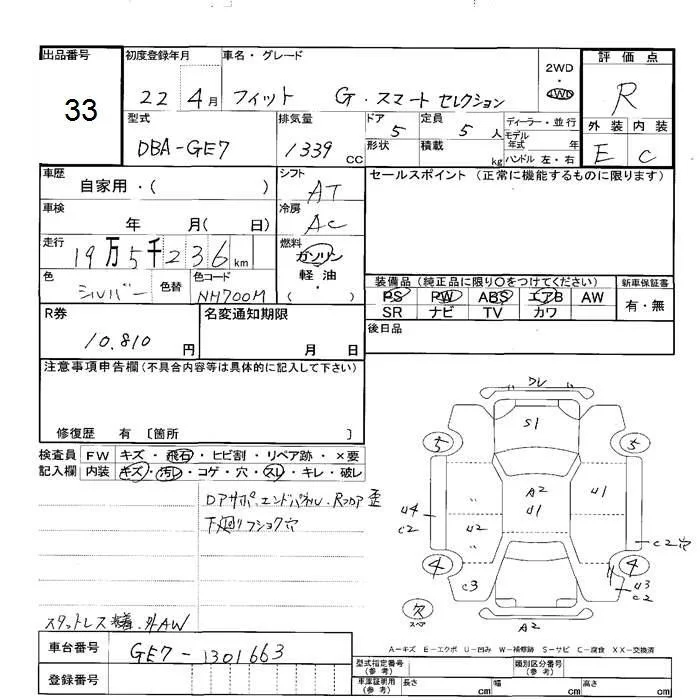 出品番号
33
初度登録年月
22 4月
車名・グレード
フィット G・スマートセレクション
2WD
・
4WD
評価点
R
外装 内装
E C
型式
DBA-GE7
排気量
1339 cc
ドア 5
形状
定員 5 人
積載 kg
ディーラー・並行
モデル年式 年
ハンドル 左・右
車歴
自家用・( )
シフト
AT
セールスポイント (正常に機能するものに限ります)
車検
年 月( 日)
冷房
AC
走行
19万5千236km
燃料
ガソリン
軽油
( )
色
シルバー
色替
色コード
NH700M
装備品 (純正品に限り○をつけてください)
新車保証書
PS PW ABS エアB AW
SR ナビ TV カワ
有・無
後日品
R券
10.810 円
名変通知期限
月 日
注意事項申告欄(不具合内容等は具体的に記入して下さい)
修復歴 有 〔箇所 〕
検査員記入欄
FW キズ・飛石・ヒビ割・リペア跡・×要
内装 キズ・汚レ・コゲ・穴・スレ・キレ・破レ
Dアサポ.エンドパネル.Rフロア歪
下廻リフショク穴
スタットレス 外AW
車台番号
GE7-1301663
登録番号
S1
5 5
A2
U1
U1
U4
C2
U2
C2穴
4 4
C3
U3
C2
欠
スペア
A2
A-キズ E-エクボ U-凹み W-補修跡 S-サビ C-腐食 XX-交換済
型式指定番号
(参考)
類別区分番号
(参考)
車庫証明用
(参考)
長さ cm
幅 cm
高さ cm